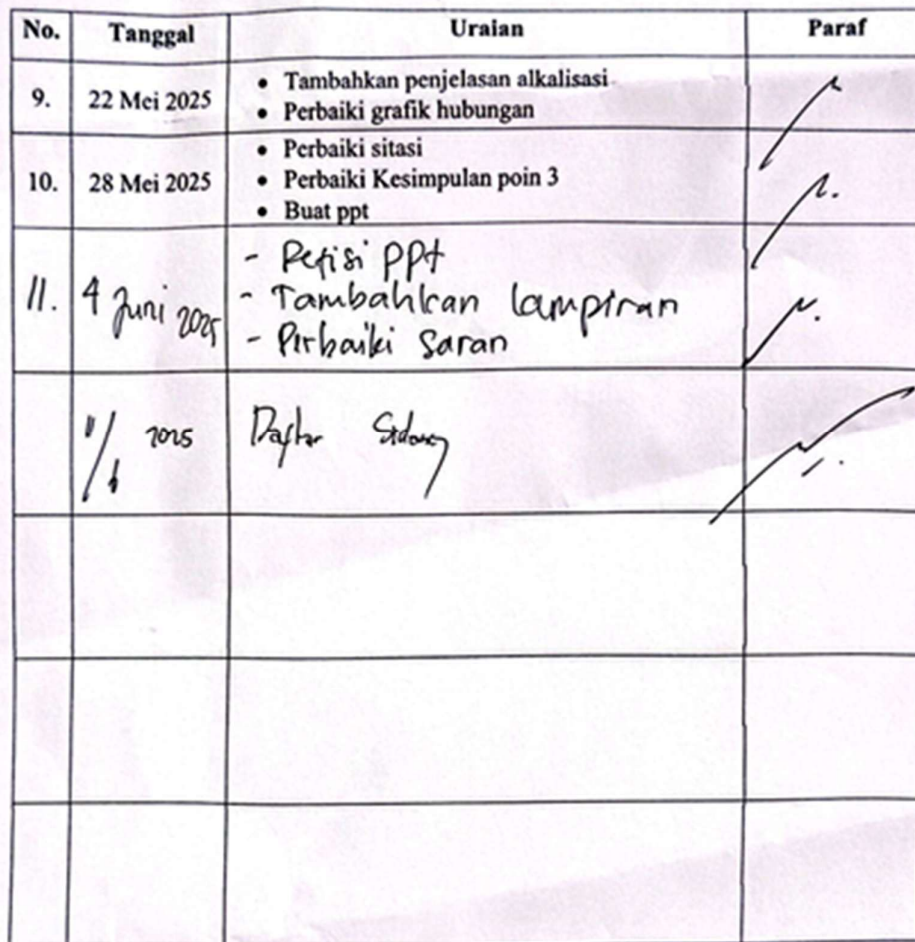 No. Tanggal Uraian Paraf
9. 22 Mei 2025 • Tambahkan penjelasan alkalisasi
• Perbaiki grafik hubungan
10. 28 Mei 2025 • Perbaiki sitasi
• Perbaiki Kesimpulan poin 3
• Buat ppt
11. 4 Juni 2025 - Revisi ppt
- Tambahkan lampiran
- Perbaiki saran
11/6 2025 Daftar Sidang